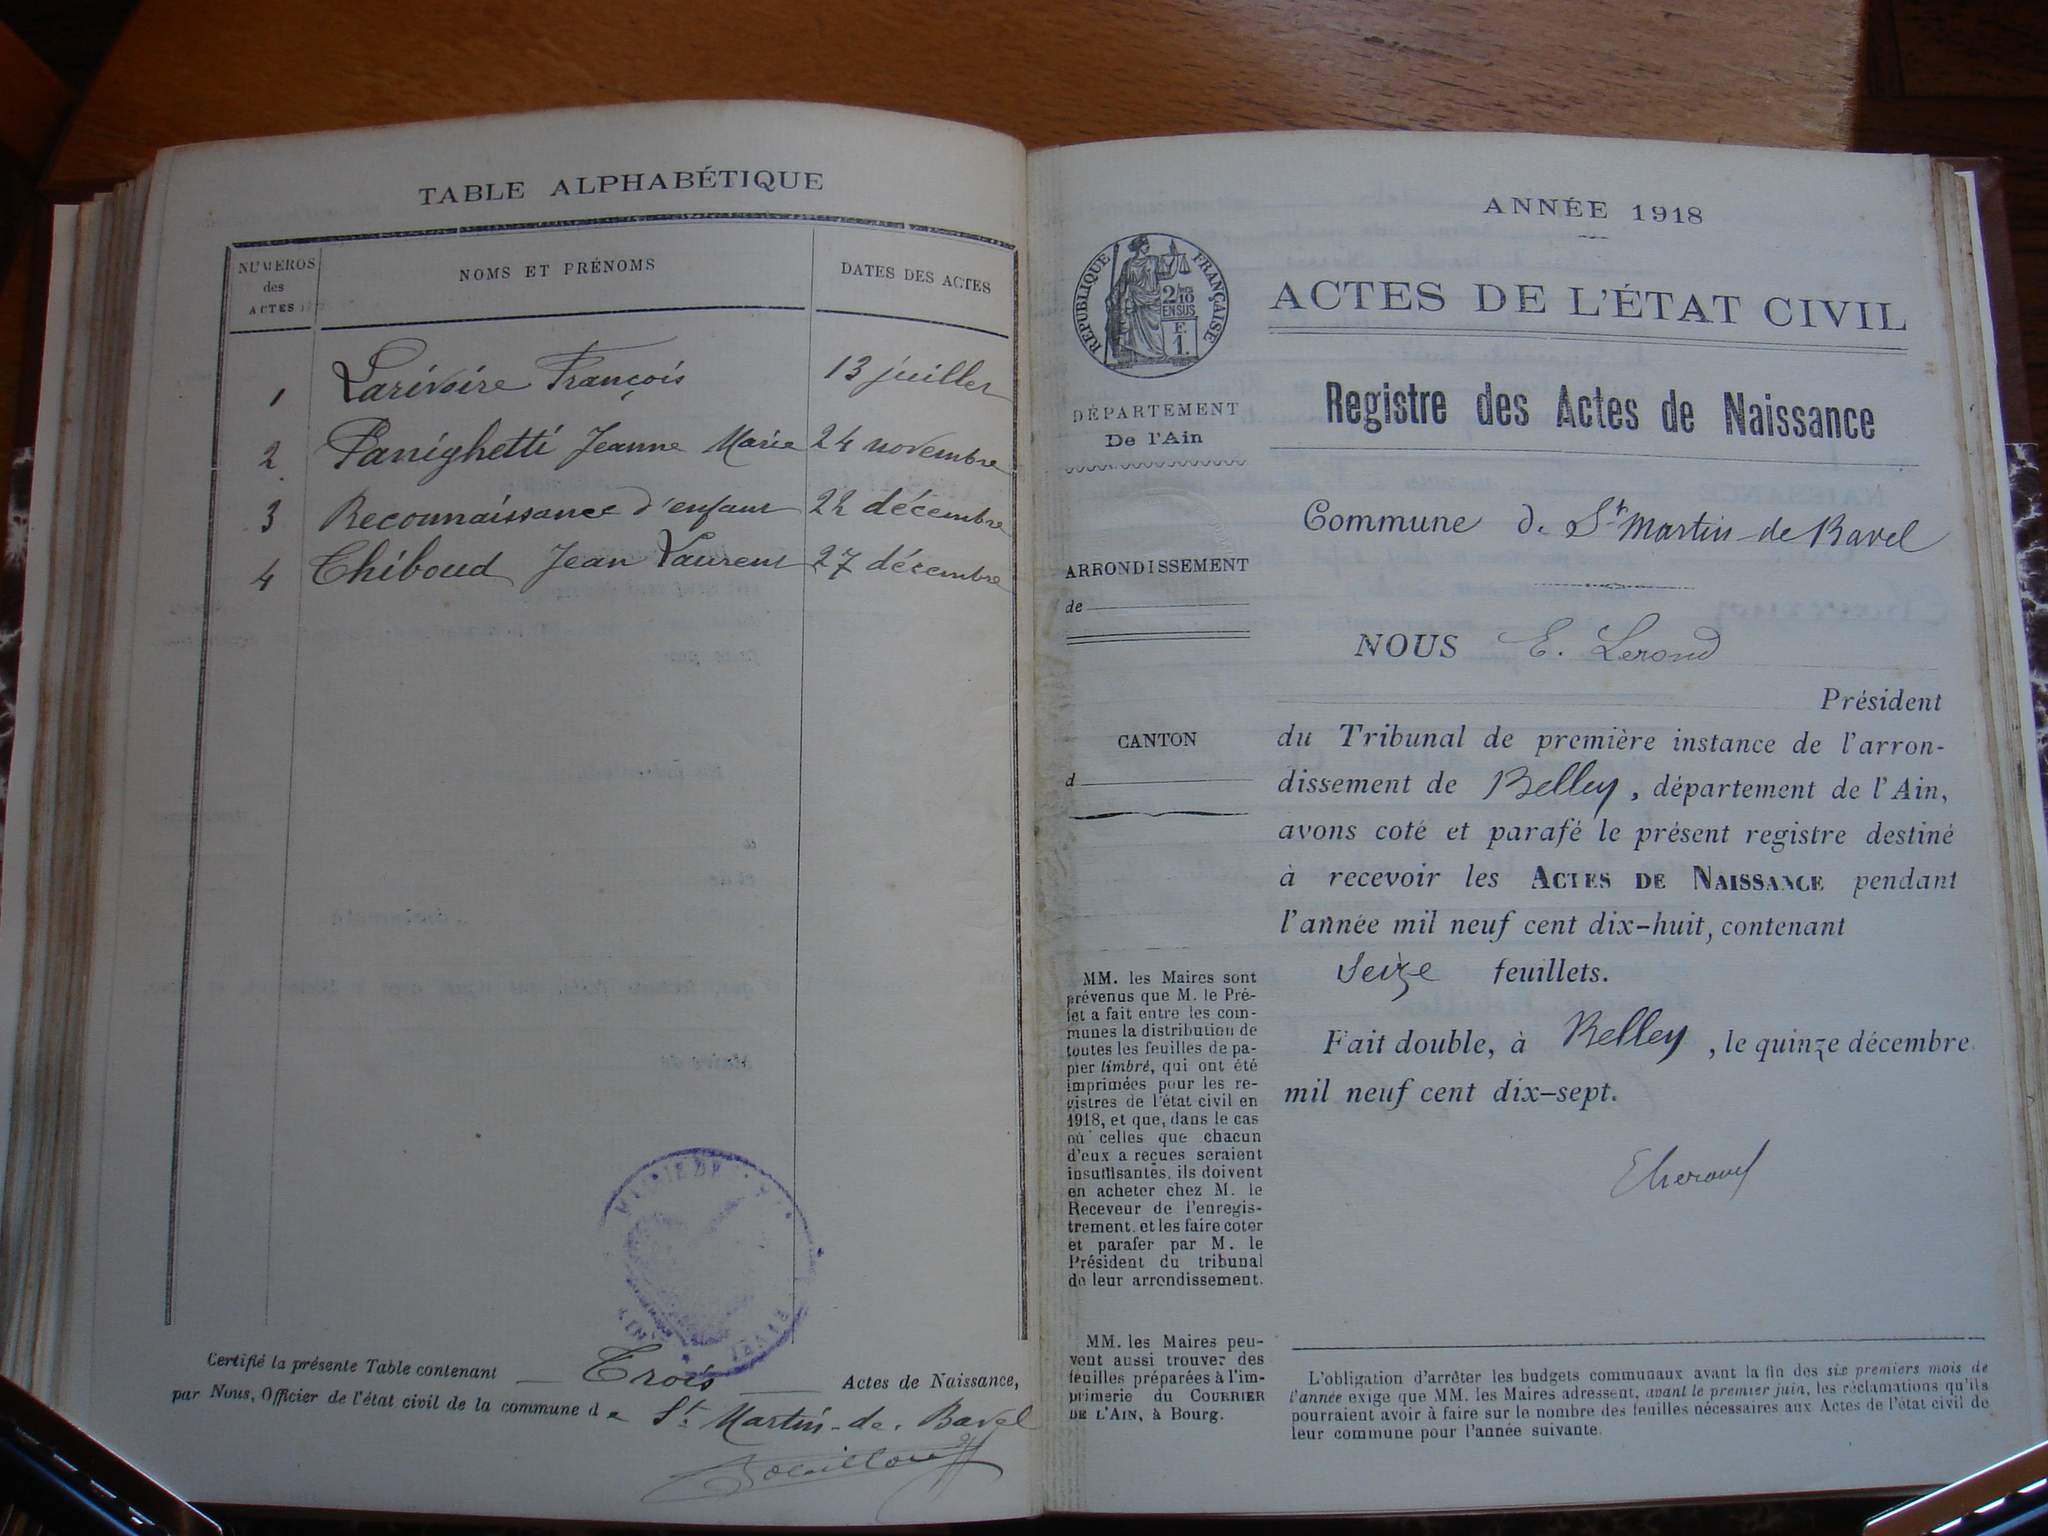 TABLE ALPHABÉTIQUE
NUMÉROS des ACTES
NOMS ET PRÉNOMS
DATES DES ACTES
1 Larivoire François 13 juillet
2 Panighetti Jeanne Marie 24 novembre
3 Reconnaissance d'enfant 22 décembre
4 Thiboud Jean Laurent 27 décembre
MAIRIE DE
AIN
Certifié la présente Table contenant Trois Actes de Naissance,
par Nous, Officier de l'état civil de la commune de St Martin-de-Bavel
ANNÉE 1918
RÉPUBLIQUE FRANÇAISE
2/10
EN SUS
F.
1.
ACTES DE L'ÉTAT CIVIL
DÉPARTEMENT
De l'Ain
Registre des Actes de Naissance
Commune de St Martin-de-Bavel
ARRONDISSEMENT
de
NOUS E. Lerond
Président
CANTON
d
du Tribunal de première instance de l'arron-
dissement de Belley, département de l'Ain,
avons coté et parafé le présent registre destiné
à recevoir les ACTES DE NAISSANCE pendant
l'année mil neuf cent dix-huit, contenant
seize feuillets.
Fait double, à Belley, le quinze décembre
mil neuf cent dix-sept.
MM. les Maires sont
prévenus que M. le Pré-
fet a fait entre les com-
munes la distribution de
toutes les feuilles de pa-
pier timbré, qui ont été
imprimées pour les re-
gistres de l'état civil en
1918, et que, dans le cas
où celles que chacun
d'eux a reçues seraient
insuffisantes, ils doivent
en acheter chez M. le
Receveur de l'enregis-
trement, et les faire coter
et parafer par M. le
Président du tribunal
de leur arrondissement.
MM. les Maires peu-
vent aussi trouver des
feuilles préparées à l'im-
primerie du COURRIER
DE L'AIN, à Bourg.
L'obligation d'arrêter les budgets communaux avant la fin des six premiers mois de
l'année exige que MM. les Maires adressent, avant le premier juin, les réclamations qu'ils
pourraient avoir à faire sur le nombre des feuilles nécessaires aux Actes de l'état civil de
leur commune pour l'année suivante.